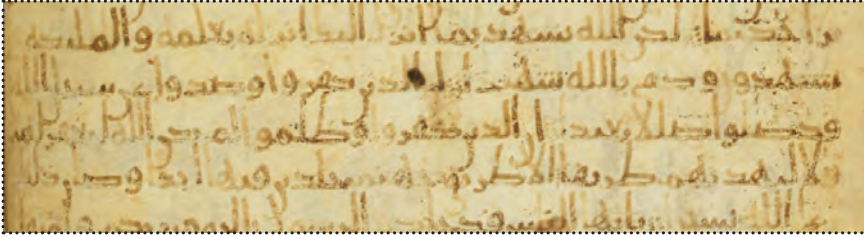 يزا حكيما لكن الله يشهد بما انزل اليك انزله بعلمه والملئكه
يشهدون وكفى بالله شهيدا ان الذين كفروا وصدوا عن سبيل الله
قد ضلوا ضللا بعيدا ان الذين كفروا وظلموا لم يكن الله ليغفر لهم
ولا ليهديهم طريقا الا طريق جهنم خلدين فيها ابدا وكان ذلك
على الله يسيرا يايها الناس قد جاكم الرسول بالحق من ربكم فامنوا